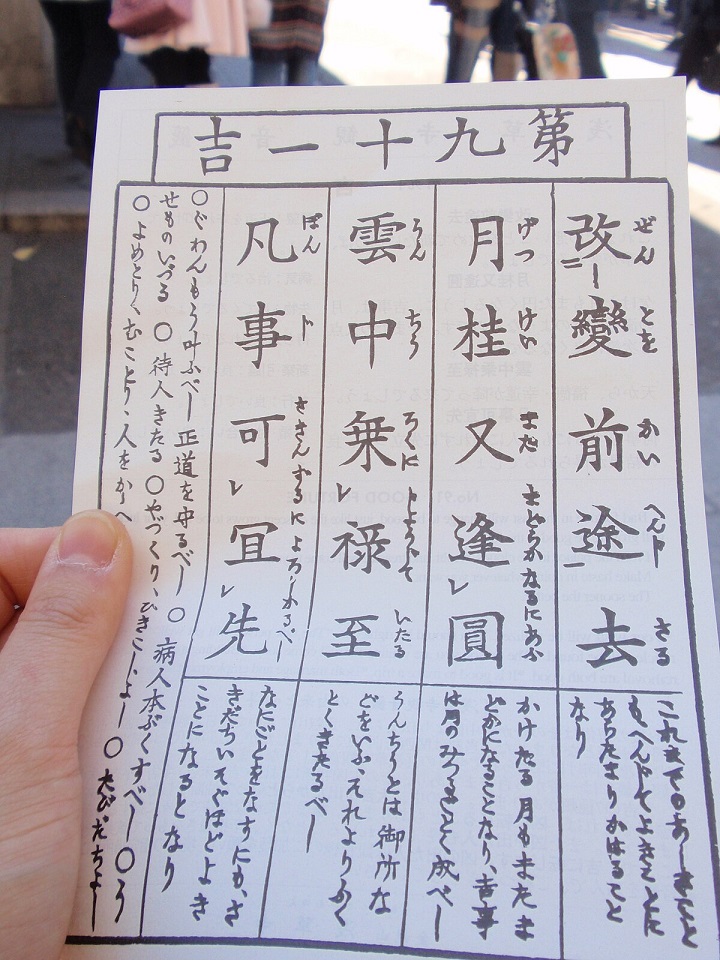 第九十一吉
改變前途去
ぜん とを かい へんじ さる
月桂又逢圓
げつ けい また まどらかなるにあふ
雲中乗禄至
うん ちう ろくに じようじて いたる
凡事可宜先
ぼん じ さきんずるによろしかるべし
これまでのあしきこと
もへんじてよきことに
あらたまりかはること
なり
かけたる月もまたま
どかになることなり、吉事
は月のみつるごとく成べし
うんちうとは御所な
どをいふ、それよりふく
とくきたるべし
なにごとをなすにも、さ
きだちいそぐほどよき
ことになるとなり
〇ぐわんもう叶ふべし 正道を守るべし 〇病人本ぶくすべし 〇う
せものいづる 〇待人きたる 〇やづくり、ひきこしよし 〇たびだちよし
〇よめとり、むことり、人をかゝへ